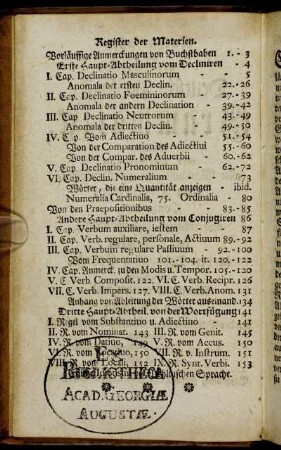 Register der Materien.
Vorläuffige Anmerckungen von Buchstaben 1. - 3
Erste Haupt-Abtheilung vom Decliniren - 4
I. Cap. Declinatio Masculinorum - 5
Anomala der ersten Declin. 22.-26
II. Cap. Declinatio Foemininorum - 27.-39
Anomala der andern Declination - 39.-42
III. Cap Declinatio Neutrorum - 43.-49
Anomala der dritten Declin. 49.-50
IV. C p. Vom Adiectiuo - 51.-54
Von der Comparation des Adiectiui 55.-60
Von der Compar. des Aduerbii - 60.-62
V. Cap. Declinatio Pronominum - 62.-72
VI. Cap. Declin. Numeralium - 73
Wörter, die eine Quantität anzeigen - ibid.
Numeralia Cardinalia, 75. Ordinalia - 80
Von den Praepositionibus - 83.-85
Andere Haupt-Abtheilung vom Conjugiren 86
I. Cap. Verbum auxiliare, iestem - 87
II. Cap. Verb. regulare, personale, Actiuum 89.-92
III. Cap. Verbum regulare Passiuum - 92.-100
Vom Frequentatiuo 101.-104. it. 120.-122
IV. Cap. Anmerck. zu den Modis u. Tempor. 105.-120
V. C Verb. Composit. 122. VI. C. Verb. Recipr. 126
VII. C. Verb. Impers. 127. VIII. C. Verb. Anom. 131
Anhang von Ableitung der Wörter auseinand. 134
Dritte Haupt-Abtheil. von der Wortfügung 141
I. Regel vom Substantiuo u. Adiectiuo - 141
II. R. vom Nominat. 143 III. R. vom Genit. 145
IV. R. vom Datiuo, 149 V. R. vom Accus. 150
VI. R. vom Vocatiuo, 150 VII. R. v. Instrum. 151
VIII. R. vom Locali, 152 IX. R. Synt. Verbi. 153
Sprache.
BIBLIOTHECA
ACAD. GEORGIÆ
AUGUSTÆ.